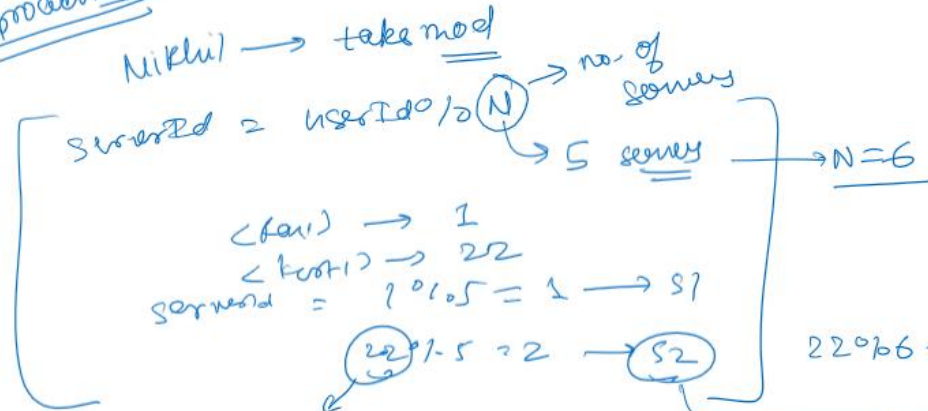 Nikhil → take mod
serverId = userId % N → no. of servers
→ 5 servers → N=6
→ 1
→ 22
serverId = 1%5 = 1 → S1
22 % 5 = 2 → S2
22%6